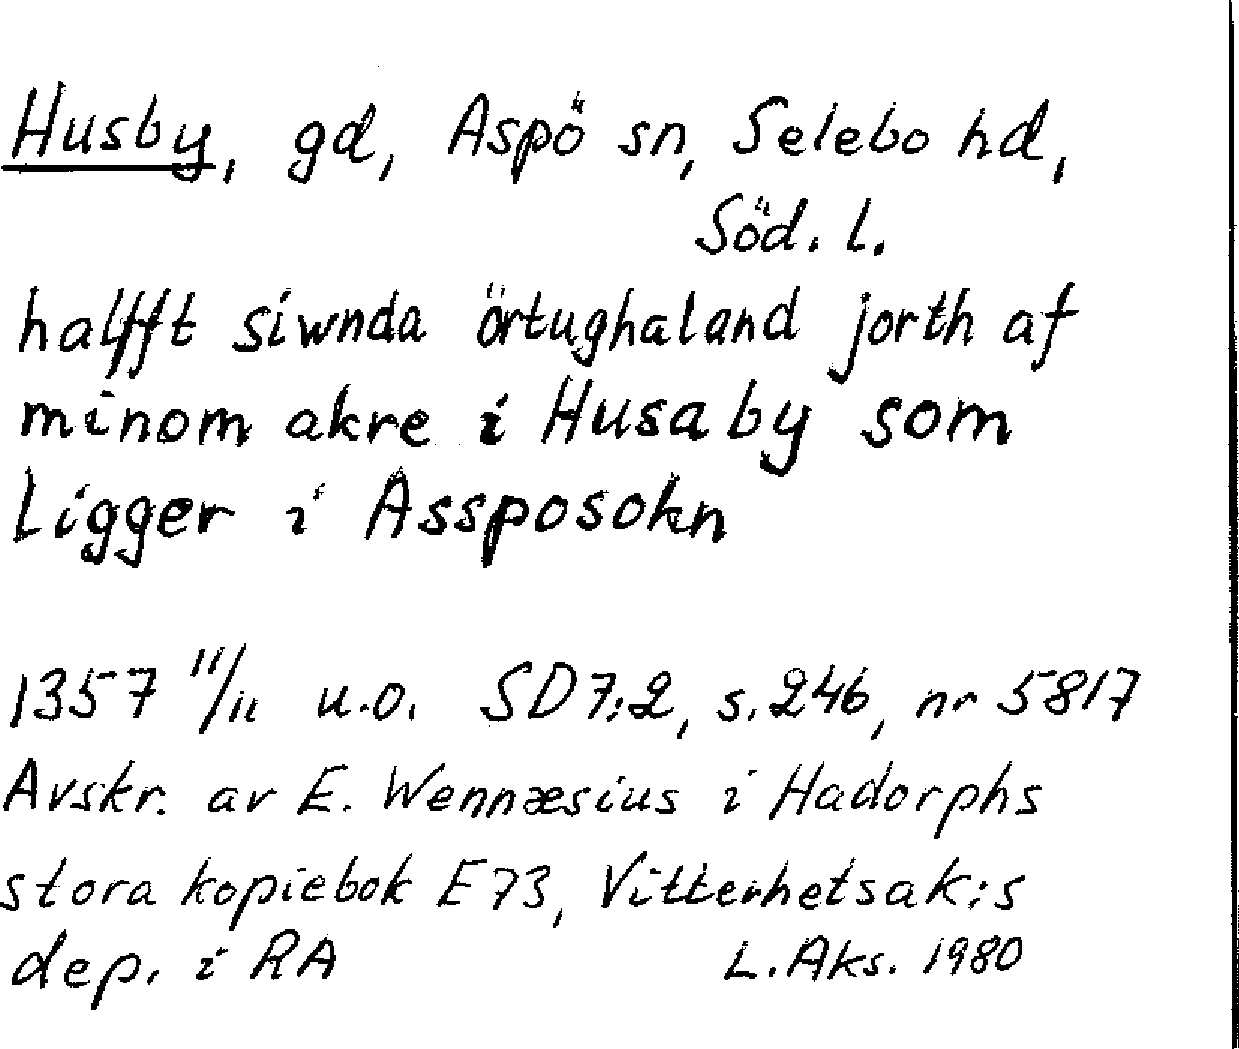 Husby, gd, Aspö sn, Selebo hd,
Söd. l.
halfft siwnda örtughaland jorth af
minom akre i Husaby som
Ligger i Assposokn
1357 11/11 u.o. SD7:2, s. 246, nr 5817
Avskr. av E. Wennæsius i Hadorphs
stora kopiebok E73, Vitterhetsak:s
dep. i RA
L. Aks. 1980